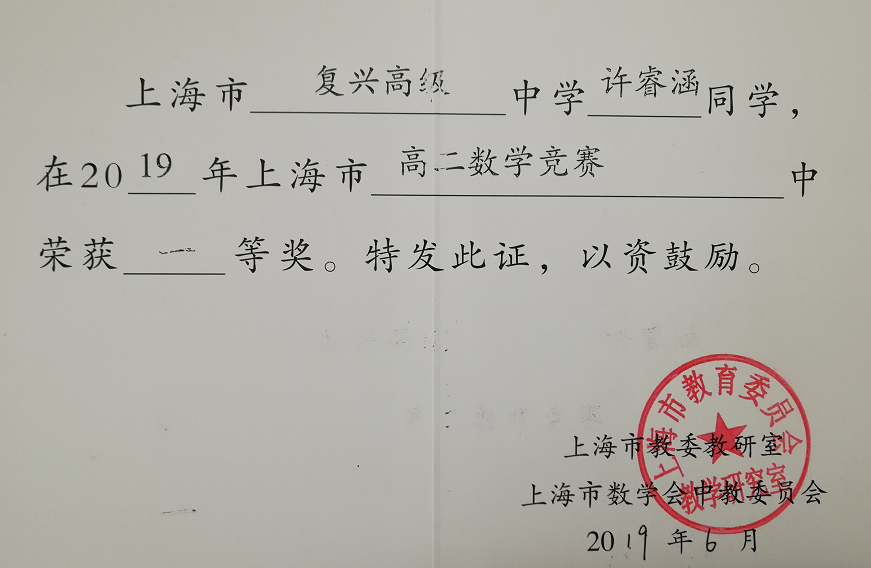 上海市复兴高级中学许睿涵同学，
在2019年上海市高二数学竞赛中
荣获一等奖。特发此证，以资鼓励。
上海市教育委员会
教学研究室
上海市教委教研室
上海市数学会中教委员会
2019年6月